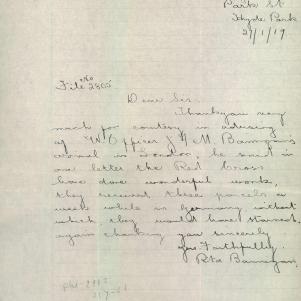 Park St
Hyde Park
29/1/19
File No 2805
Dear Sir.
Thank you very
much for courtesy in advising
of W. Officer J. H. M. Banngan's
arrival in London, he said in
one letter the Red Cross
have done wonderful work,
they received three parcels a
week while in Germany without
which they would have starved.
again thanking you sincerely
yrs Faithfully.
Rita